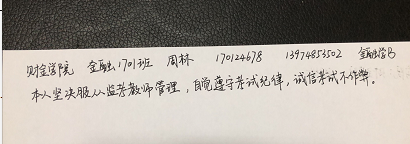 财金学院 金融1701班 周林 170124678 13974853502 金融学B
本人坚决服从监考教师管理，自觉遵守考试纪律，诚信考试不作弊。